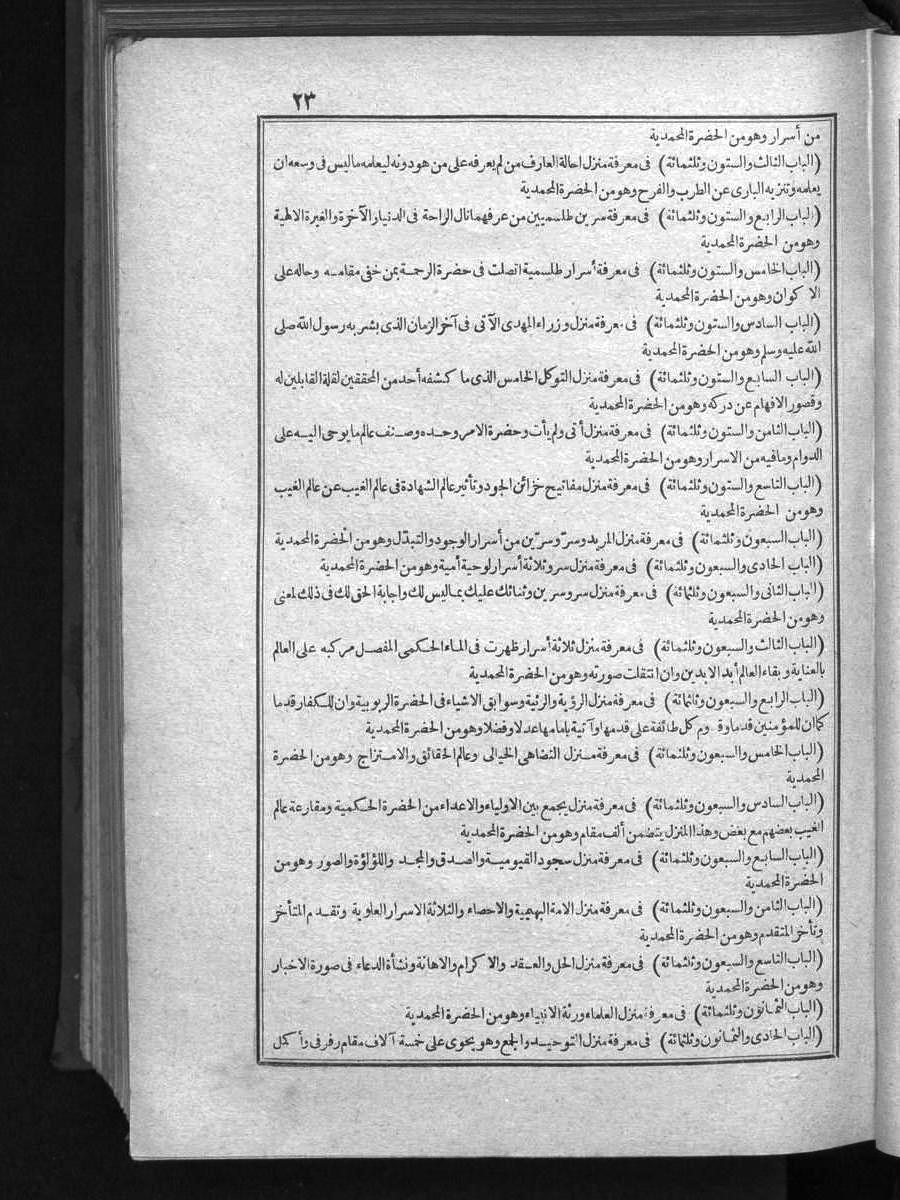 ٢٣
من أسرار وهو من الحضرة المحمدية
(الباب الثالث والستون وثلثمائة) فى معرفة منزل احالة العارف من لم يعرفه على من هو دونه ليعلمه ما ليس فى وسعه ان
يعلمه وتنزيه البارى عن الطرب والفرح وهو من الحضرة المحمدية
(الباب الرابع والستون وثلثمائة) فى معرفة سرين طلسميين من عرفهما نال الراحة فى الدنيا والآخرة والغيرة الالهية
وهو من الحضرة المحمدية
(الباب الخامس والستون وثلثمائة) فى معرفة أسرار طلسمية اتصلت فى حضرة الرحمة بمن خفى مقامه وحاله على
الاكوان وهو من الحضرة المحمدية
(الباب السادس والستون وثلثمائة) فى معرفة منزل وزراء المهدى الآتى فى آخر الزمان الذى بشر به رسول الله صلى
الله عليه وسلم وهو من الحضرة المحمدية
(الباب السابع والستون وثلثمائة) فى معرفة منزل التوكل الخامس الذى ما كشفه أحد من المحققين لقلة القابلين له
وقصور الافهام عن دركه وهو من الحضرة المحمدية
(الباب الثامن والستون وثلثمائة) فى معرفة منزل أتى ولم يأت وحضرة الامر وحده وصنف عالم ما يوحى اليه على
الدوام وما فيه من الاسرار وهو من الحضرة المحمدية
(الباب التاسع والستون وثلثمائة) فى معرفة منزل مفاتيح خزائن الجود وتأثير عالم الشهادة فى عالم الغيب عن عالم الغيب
وهو من الحضرة المحمدية
(الباب السبعون وثلثمائة) فى معرفة منزل المريد وسرّ وسرّين من أسرار الوجود والتبدّل وهو من الحضرة المحمدية
(الباب الحادى والسبعون وثلثمائة) فى معرفة منزل سر وثلاثة أسرار لوحية أمية وهو من الحضرة المحمدية
(الباب الثانى والسبعون وثلثمائة) فى معرفة منزل سر وسرين وثنائك عليك بما ليس لك واجابة الحق لك فى ذلك لمعنى
وهو من الحضرة المحمدية
(الباب الثالث والسبعون وثلثمائة) فى معرفة منزل ثلاثة أسرار ظهرت فى الماء الحكمى المفصل مركبه على العالم
بالعناية وبقاء العالم أبد الابدين وان انتقلت صورته وهو من الحضرة المحمدية
(الباب الرابع والسبعون وثلثمائة) فى معرفة منزل الرؤية والرئية وسوابق الاشياء فى الحضرة الربوبية وان للكفار قدما
كما ان للمؤمنين قدما وقدوم كل طائفة على قدمها وآتية بامامها عدلا وفضلا وهو من الحضرة المحمدية
(الباب الخامس والسبعون وثلثمائة) فى معرفة منزل التضاهى الخيالى وعالم الحقائق والامتزاج وهو من الحضرة
المحمدية
(الباب السادس والسبعون وثلثمائة) فى معرفة منزل يجمع بين الاولياء والاعداء من الحضرة الحكمية ومقارعة عالم
الغيب بعضهم مع بعض وهذا المنزل يتضمن ألف مقام وهو من الحضرة المحمدية
(الباب السابع والسبعون وثلثمائة) فى معرفة منزل سجود القيومية والصدق والمجد واللؤلؤة والصور وهو من
الحضرة المحمدية
(الباب الثامن والسبعون وثلثمائة) فى معرفة منزل الامة البهيمية والاحصاء والثلاثة الاسرار العلوية وتقدم المتأخر
وتأخر المتقدم وهو من الحضرة المحمدية
(الباب التاسع والسبعون وثلثمائة) فى معرفة منزل الحل والعقد والاكرام والاهانة ونشأة الدعاء فى صورة الاخبار
وهو من الحضرة المحمدية
(الباب الثمانون وثلثمائة) فى معرفة منزل العلماء ورثة الانبياء وهو من الحضرة المحمدية
(الباب الحادى والثمانون وثلثمائة) فى معرفة منزل التوحيد والجمع وهو يحوى على خمسة آلاف مقام رفرفى وأكمل